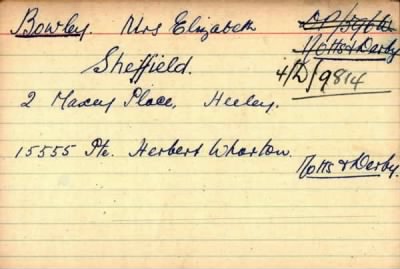 Bowley. Mrs Elizabeth
Notts & Derby
Sheffield.
4/D/9814
2 Maxey Place, Heeley.
15555 Pte. Herbert Wharton.
Notts & Derby.